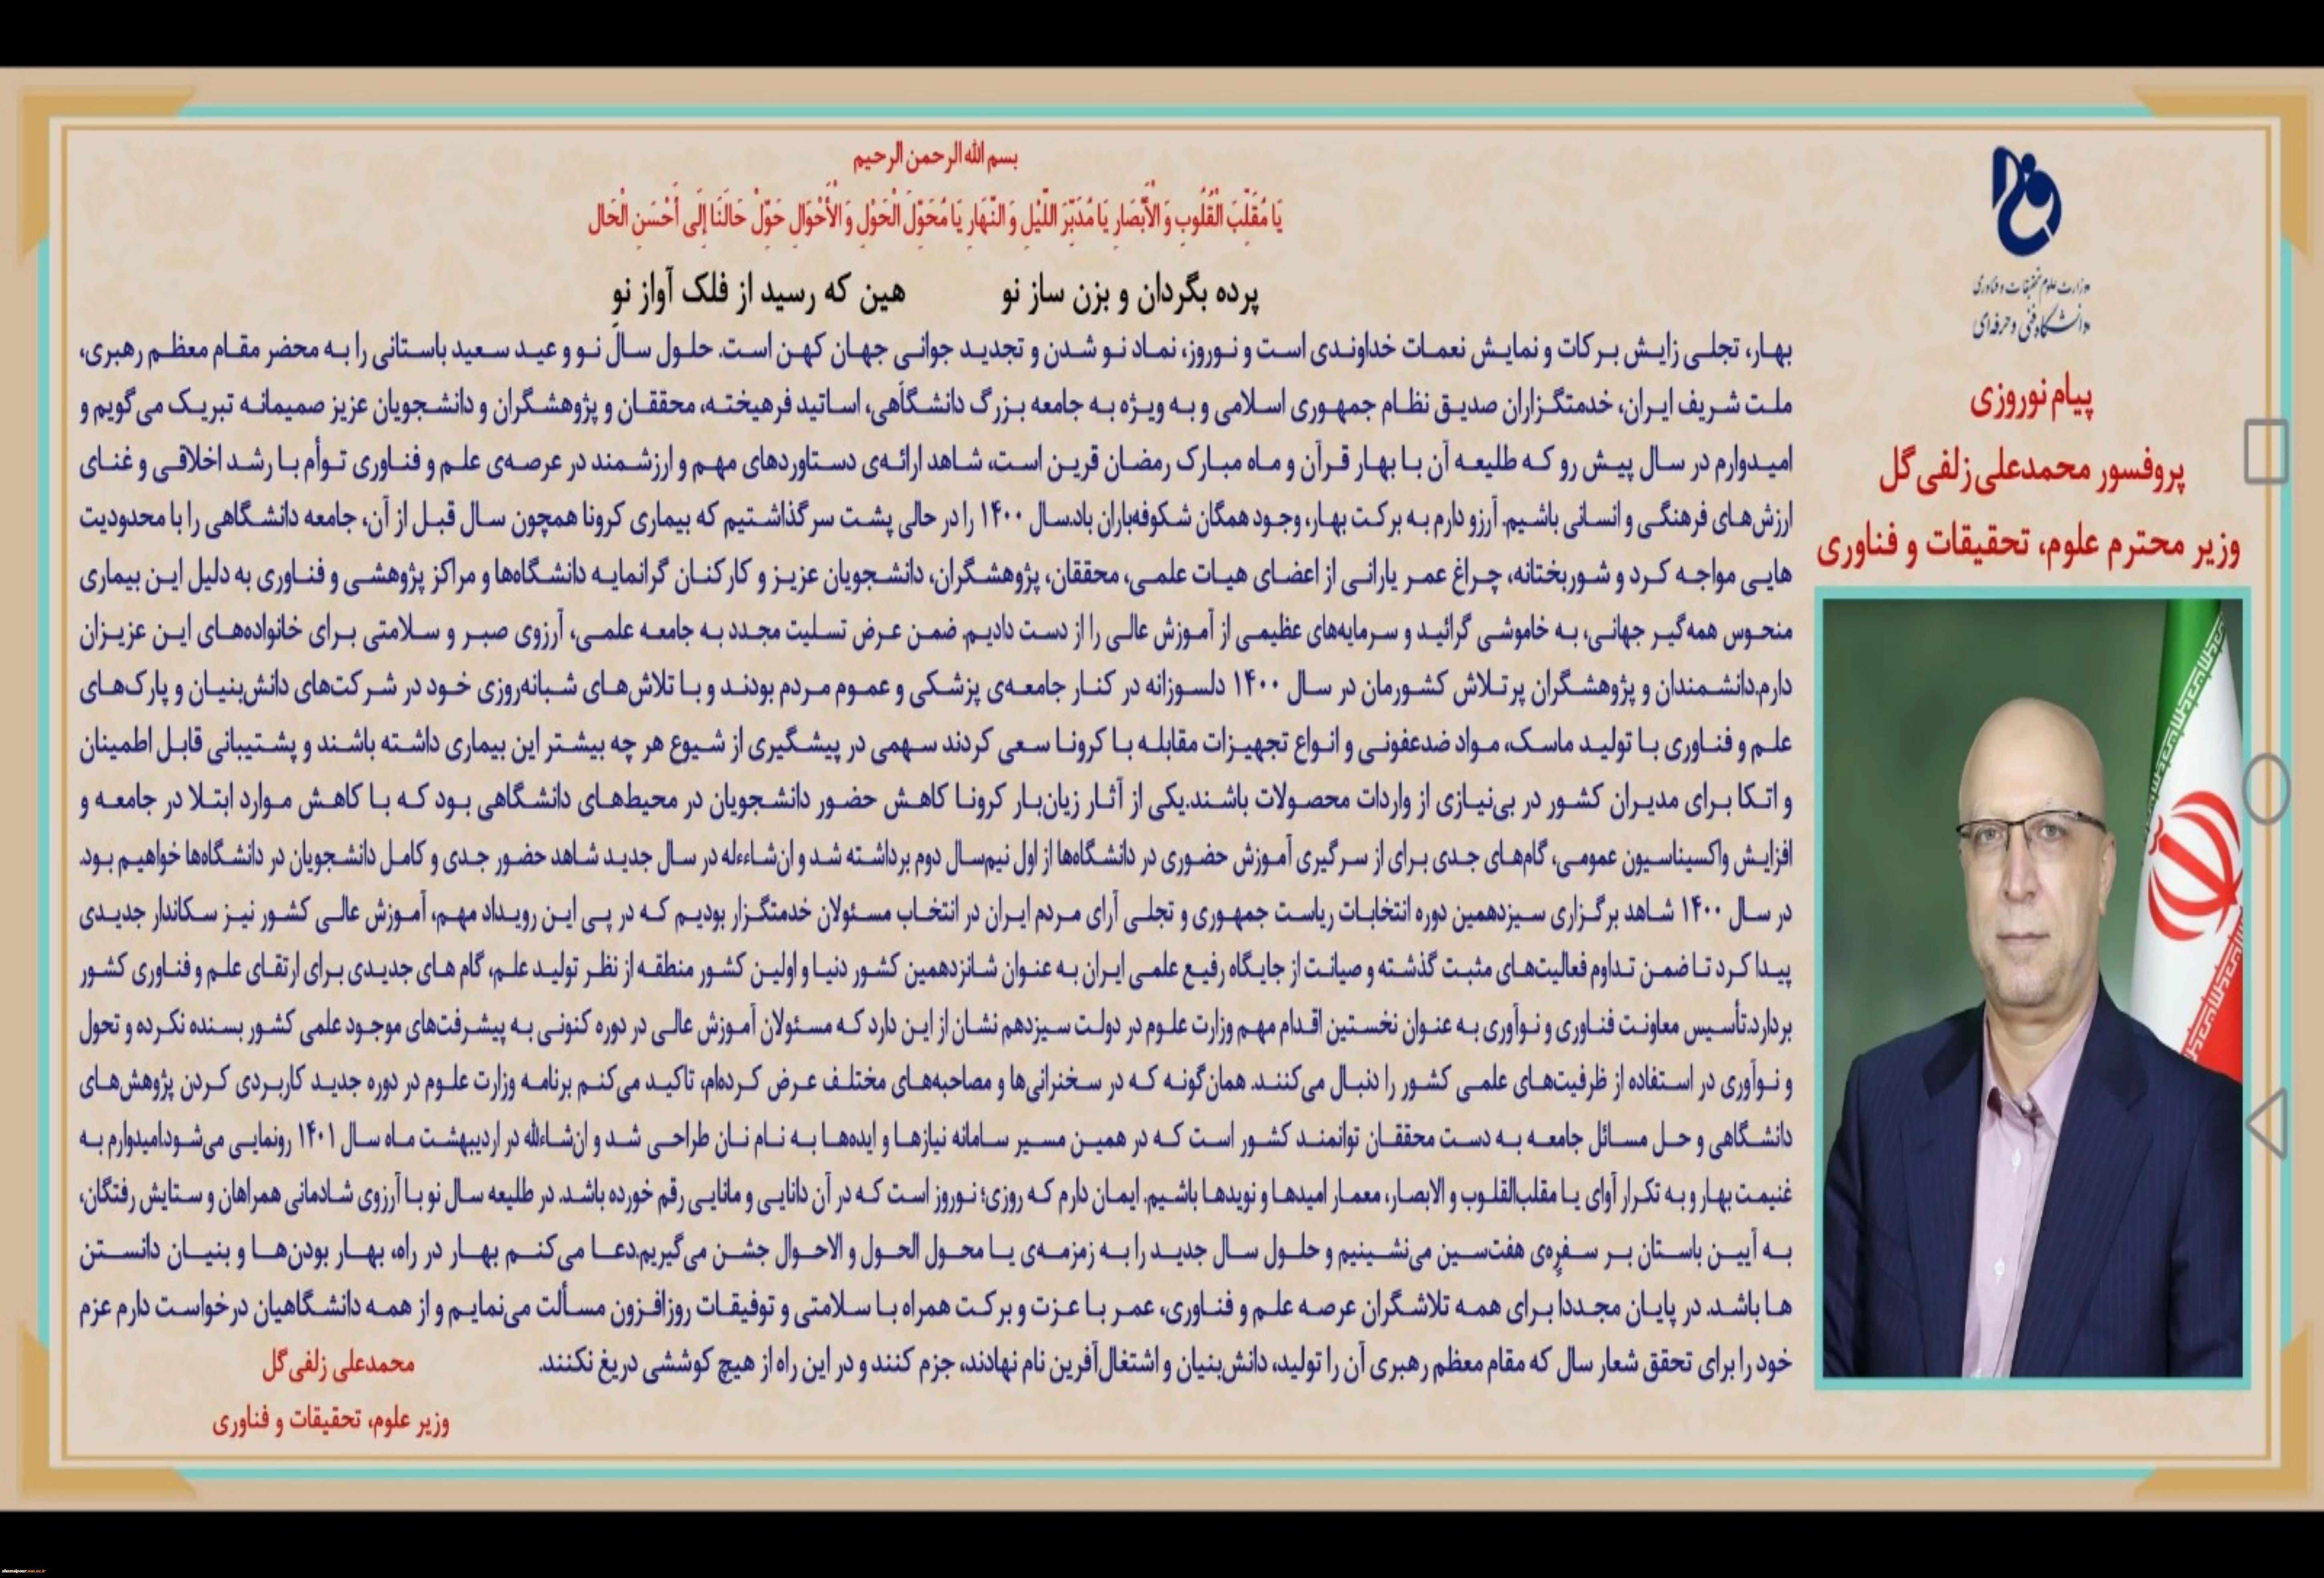 بسم الله الرحمن الرحیم
یَا مُقَلِّبَ الْقُلُوبِ وَ الْأَبْصَارِ یَا مُدَبِّرَ اللَّیْلِ وَ النَّهَارِ یَا مُحَوِّلَ الْحَوْلِ وَ الْأَحْوَالِ حَوِّلْ حَالَنَا إِلَى أَحْسَنِ الْحَال
پرده بگردان و بزن ساز نو هین که رسید از فلک آواز نو
وزارت علوم تحقیقات و فناوری
دانشگاه فنی و حرفه‌ای
پیام نوروزی
پروفسور محمدعلی زلفی گل
وزیر محترم علوم، تحقیقات و فناوری
بهار، تجلی زایش برکات و نمایش نعمات خداوندی است و نوروز، نماد نو شدن و تجدید جوانی جهان کهن است. حلول سال نو و عید سعید باستانی را به محضر مقام معظم رهبری،
ملت شریف ایران، خدمتگزاران صدیق نظام جمهوری اسلامی و به ویژه به جامعه بزرگ دانشگاهی، اساتید فرهیخته، محققان و پژوهشگران و دانشجویان عزیز صمیمانه تبریک می گویم و
امیدوارم در سال پیش رو که طلیعه آن با بهار قرآن و ماه مبارک رمضان قرین است، شاهد ارائه‌ی دستاوردهای مهم و ارزشمند در عرصه‌ی علم و فناوری توأم با رشد اخلاقی و غنای
ارزش‌های فرهنگی و انسانی باشیم. آرزو دارم به برکت بهار، وجود همگان شکوفه‌باران باد.سال ۱۴۰۰ را در حالی پشت سر گذاشتیم که بیماری کرونا همچون سال قبل از آن، جامعه دانشگاهی را با محدودیت
هایی مواجه کرد و شوربختانه، چراغ عمر یارانی از اعضای هیات علمی، محققان، پژوهشگران، دانشجویان عزیز و کارکنان گرانمایه دانشگاه‌ها و مراکز پژوهشی و فناوری به دلیل این بیماری
منحوس همه گیر جهانی، به خاموشی گرائید و سرمایه‌های عظیمی از آموزش عالی را از دست دادیم. ضمن عرض تسلیت مجدد به جامعه علمی، آرزوی صبر و سلامتی برای خانواده‌های این عزیزان
دارم.دانشمندان و پژوهشگران پرتلاش کشورمان در سال ۱۴۰۰ دلسوزانه در کنار جامعه‌ی پزشکی و عموم مردم بودند و با تلاش‌های شبانه‌روزی خود در شرکت‌های دانش‌بنیان و پارک‌های
علم و فناوری با تولید ماسک، مواد ضدعفونی و انواع تجهیزات مقابله با کرونا سعی کردند سهمی در پیشگیری از شیوع هر چه بیشتر این بیماری داشته باشند و پشتیبانی قابل اطمینان
و اتکا برای مدیران کشور در بی‌نیازی از واردات محصولات باشند.یکی از آثار زیان‌بار کرونا کاهش حضور دانشجویان در محیط‌های دانشگاهی بود که با کاهش موارد ابتلا در جامعه و
افزایش واکسیناسیون عمومی، گام‌های جدی برای از سر گیری آموزش حضوری در دانشگاه‌ها از اول نیم‌سال دوم برداشته شد و ان‌شاءلله در سال جدید شاهد حضور جدی و کامل دانشجویان در دانشگاه‌ها خواهیم بود.
در سال ۱۴۰۰ شاهد برگزاری سیزدهمین دوره انتخابات ریاست جمهوری و تجلی آرای مردم ایران در انتخاب مسئولان خدمتگزار بودیم که در پی این رویداد مهم، آموزش عالی کشور نیز سکاندار جدیدی
پیدا کرد تا ضمن تداوم فعالیت‌های مثبت گذشته و صیانت از جایگاه رفیع علمی ایران به عنوان شانزدهمین کشور دنیا و اولین کشور منطقه از نظر تولید علم، گام های جدیدی برای ارتقای علم و فناوری کشور
بردارد.تأسیس معاونت فناوری و نوآوری به عنوان نخستین اقدام مهم وزارت علوم در دولت سیزدهم نشان از این دارد که مسئولان آموزش عالی در دوره کنونی به پیشرفت‌های موجود علمی کشور بسنده نکرده و تحول
و نوآوری در استفاده از ظرفیت‌های علمی کشور را دنبال می‌کنند. همان گونه که در سخنرانی‌ها و مصاحبه‌های مختلف عرض کرده‌ام، تاکید می کنم برنامه وزارت علوم در دوره جدید کاربردی کردن پژوهش‌های
دانشگاهی و حل مسائل جامعه به دست محققان توانمند کشور است که در همین مسیر سامانه نیازها و ایده‌ها به نام نان طراحی شد و ان‌شاءالله در اردیبهشت ماه سال ۱۴۰۱ رونمایی می‌شود.امیدوارم به
غنیمت بهار و به تکرار آوای یا مقلب‌القلوب و الابصار، معمار امیدها و نویدها باشیم. ایمان دارم که روزی؛ نوروز است که در آن دانایی و مانایی رقم خورده باشد. در طلیعه سال نو با آرزوی شادمانی همراهان و ستایش رفتگان،
به آیین باستان بر سفره‌ی هفت‌سین می‌نشینیم و حلول سال جدید را به زمزمه‌ی یا محول الحول و الاحوال جشن می گیریم.دعا می کنم بهار در راه، بهار بودن‌ها و بنیان دانستن
ها باشد. در پایان مجددا برای همه تلاشگران عرصه علم و فناوری، عمر با عزت و برکت همراه با سلامتی و توفیقات روزافزون مسألت می‌نمایم و از همه دانشگاهیان درخواست دارم عزم
خود را برای تحقق شعار سال که مقام معظم رهبری آن را تولید، دانش‌بنیان و اشتغال‌آفرین نام نهادند، جزم کنند و در این راه از هیچ کوششی دریغ نکنند.
محمدعلی زلفی گل
وزیر علوم، تحقیقات و فناوری